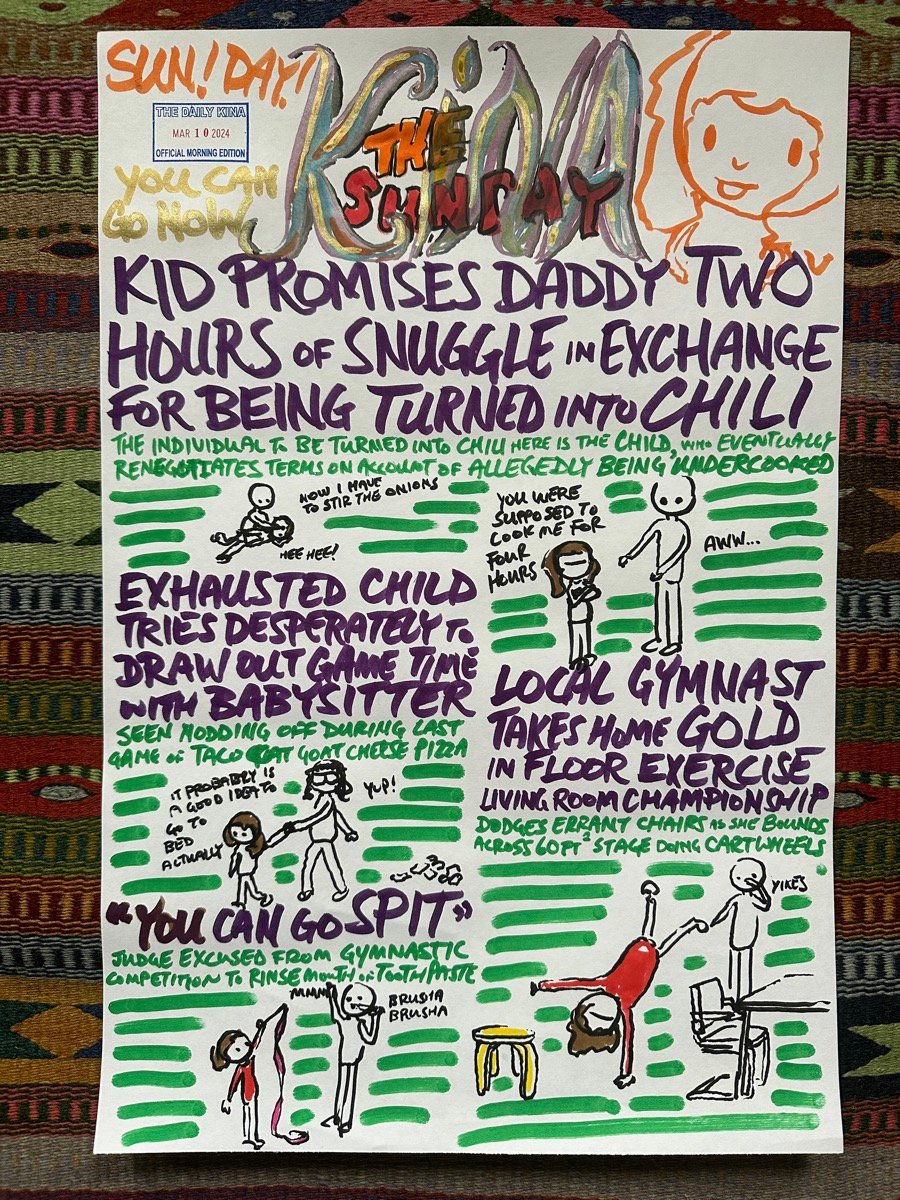 SUN! DAY!
THE DAILY KINA
MAR 10 2024
OFFICIAL MORNING EDITION
YOU CAN
GO NOW
KiNA
THE
SUNDAY
KID PROMISES DADDY TWO
HOURS OF SNUGGLE IN EXCHANGE
FOR BEING TURNED INTO CHILI
THE INDIVIDUAL TO BE TURNED INTO CHILI HERE IS THE CHILD, WHO EVENTUALLY
RENEGOTIATES TERMS ON ACCOUNT OF ALLEGEDLY BEING "UNDERCOOKED
NOW I HAVE
TO STIR THE ONIONS
HEE HEE!
YOU WERE
SUPPOSED TO
COOK ME FOR
FOUR
HOURS
AWW...
EXHAUSTED CHILD
TRIES DESPERATELY TO
DRAW OUT GAME TIME
WITH BABYSITTER
SEEN NODDING OFF DURING LAST
GAME OF TACO CAT GOAT CHEESE PIZZA
IT PROBABLY IS
A GOOD IDEA TO
GO TO
BED
ACTUALLY
YUP!
LOCAL GYMNAST
TAKES HOME GOLD
IN FLOOR EXERCISE
LIVING ROOM CHAMPIONSHIP
DODGES ERRANT CHAIRS AS SHE BOUNDS
ACROSS 60 FT² STAGE DOING CARTWHEELS
YIKES
"YOU CAN GO SPIT"
JUDGE EXCUSED FROM GYMNASTIC
COMPETITION TO RINSE MOUTH OF TOOTHPASTE
MMM
BRUSHA
BRUSHA